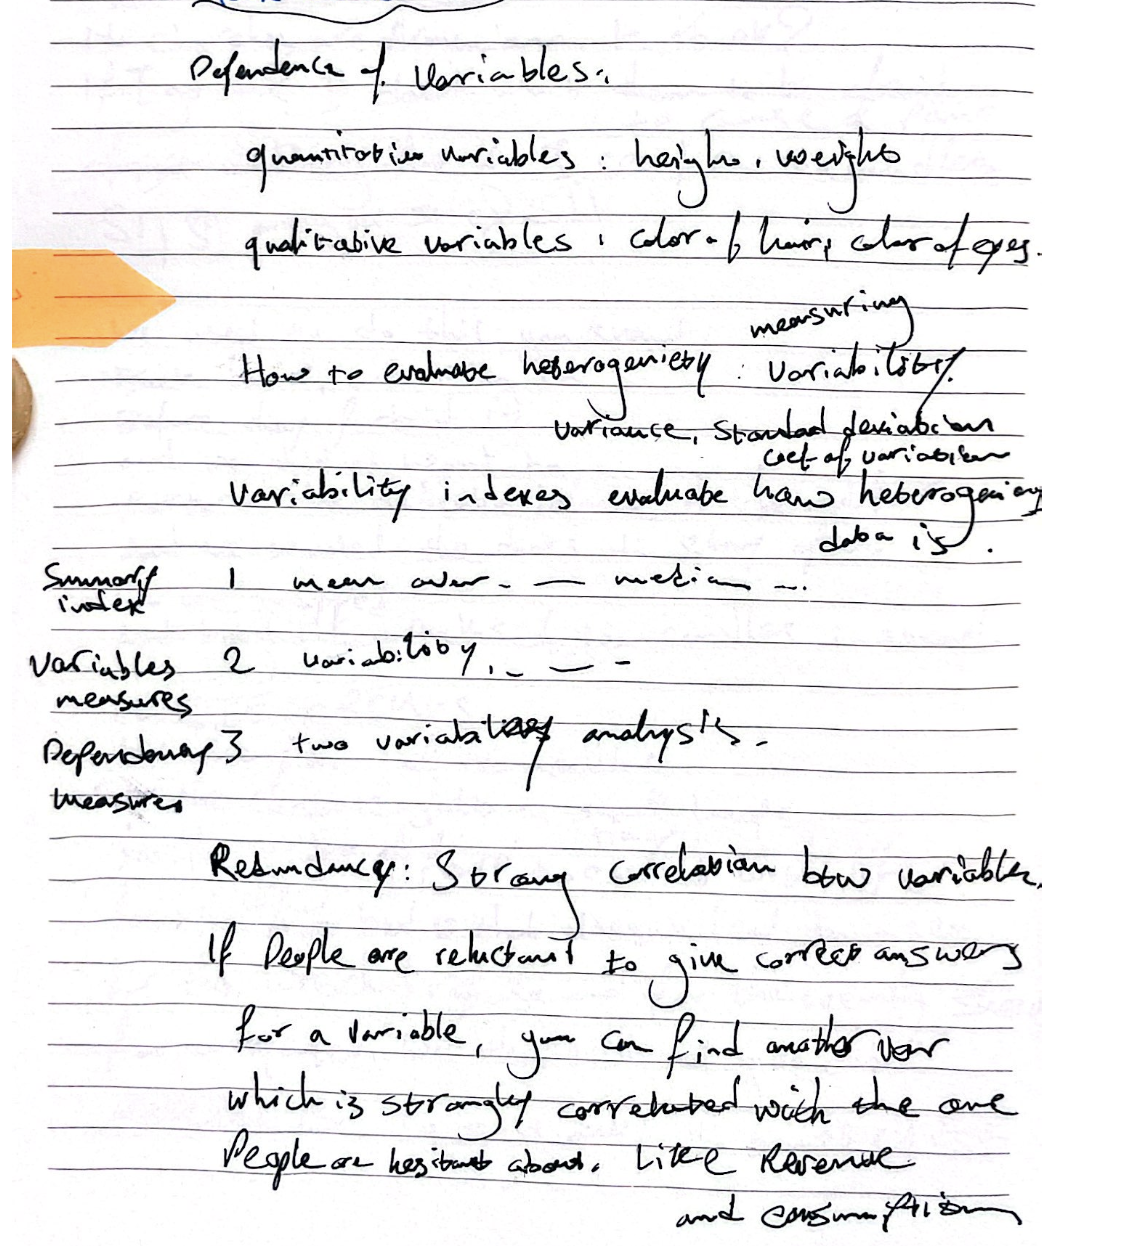 Dependence of variables:
quantitative variables : height, weight
qualitative variables : color of hair, color of eyes.
measuring
How to evaluate heterogeniety : variability.
variance, standad deviation
coef of variation
variability indexes evaluate how heterogeniety
data is .
Summary 1 mean over - — median ...
index
Variables 2 variability, - — -
measures
Dependency 3 two variabilites analysis.
measures
Redundancy: Strong correlation btw variables.
If People are reluctant to give correct answers
for a variable, you can find another var
which is strongly correlated with the one
People are hesitant about. Like Revenue
and consumption